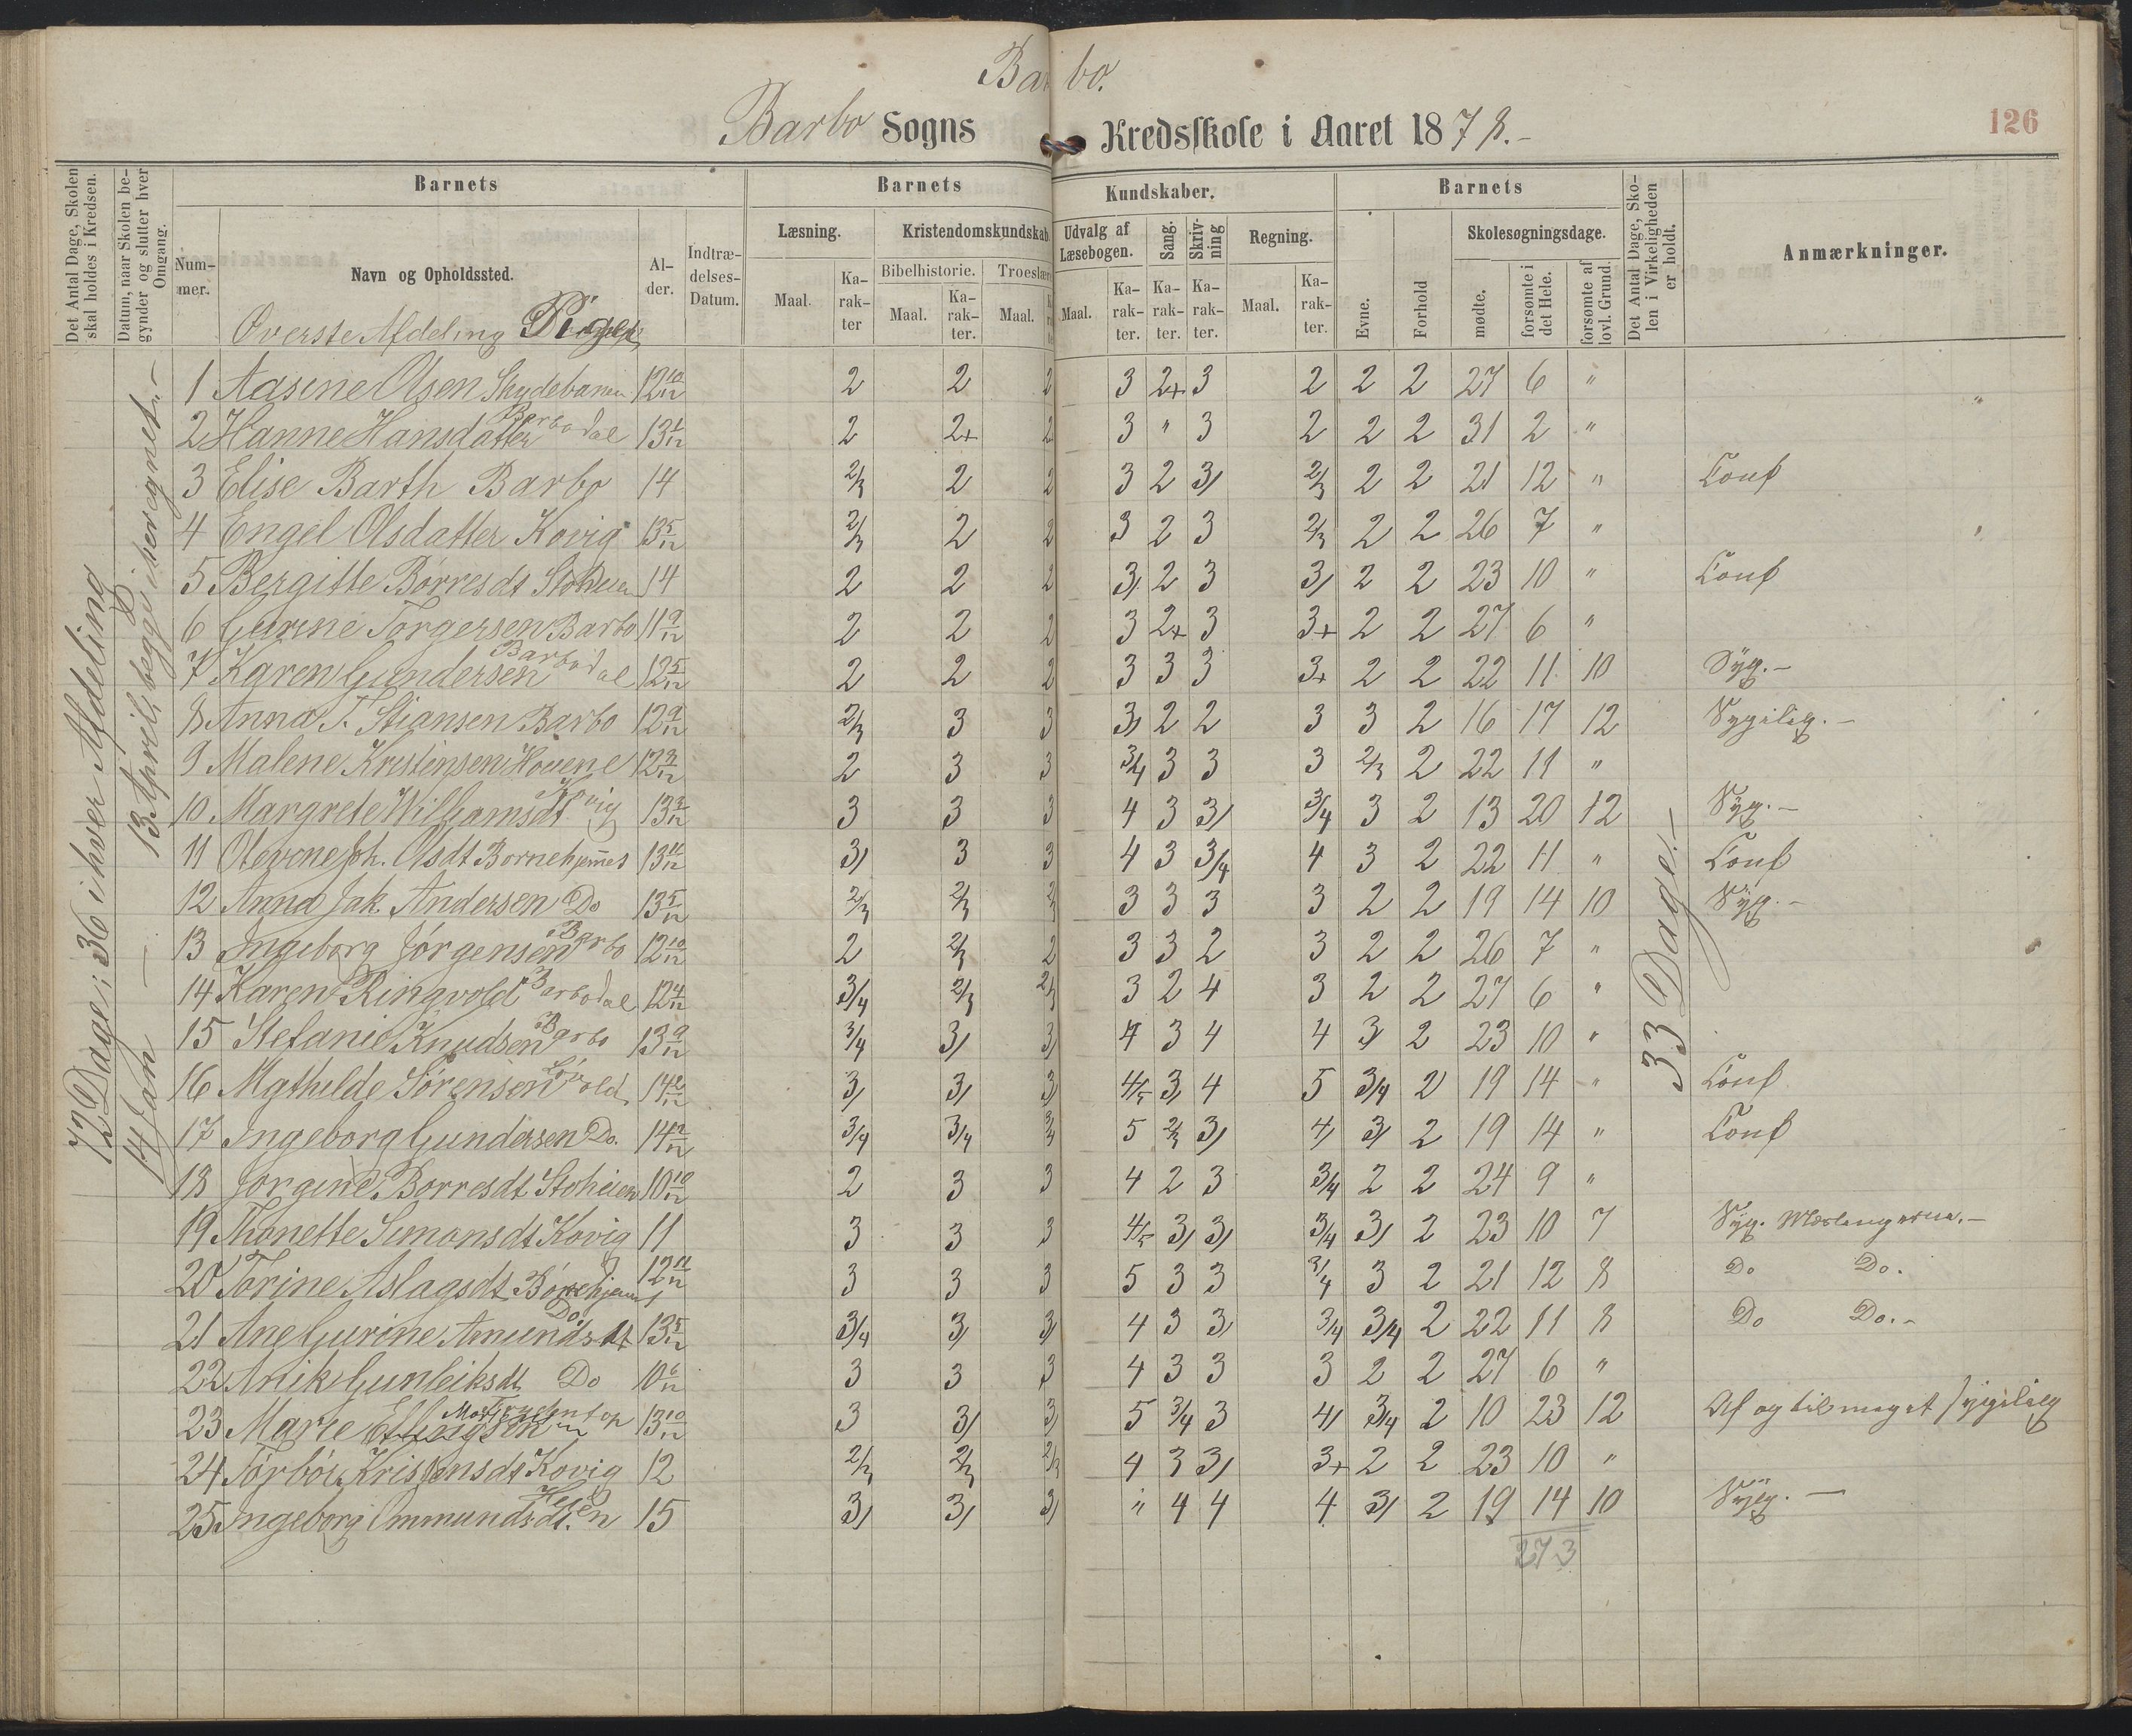 Barbo.
Barbo Sogns Kredsskole i Aaret 1878.-
126
Det Antal Dage, Skolen skal holdes i Kredsen.
Datum, naar Skolen begynder og slutter hver Omgang.
Barnets
Nummer.
Navn og Opholdssted.
Alder.
Indtrædelses-Datum.
Barnets Kundskaber.
Læsning.
Maal.
Karakter
Kristendomskundskab
Bibelhistorie.
Maal.
Karakter.
Troeslære
Maal.
Udvalg af Læsebogen.
Maal.
Karakter.
Sang.
Karakter.
Skrivning
Karakter.
Regning.
Maal.
Karakter.
Barnets
Evne.
Forhold
Skolesøgningsdage.
mødte.
forsømte i det Hele.
forsømte af lovl. Grund.
Det Antal Dage, Skolen i Virkeligheden er holdt.
Anmærkninger.
Øverste Afdeling Piger
72 Dage; 36 i hver Afdeling
14 Jan — 13 April, begge iberegnet.-
33 Dage.-
1 Aasine Olsen Skydebanen 12 10/12 2 2 2 3 2+ 3 2 2 2 27 6 "
2 Hanne Hansdatter Barbodal 13 1/12 2 2+ 2 3 " 3 2 2 2 31 2 "
3 Elise Barth Barbo 14 2/3 2 2 3 2 3/ 2/3 2 2 21 12 " Conf
4 Engel Olsdatter Kovig 13 5/12 2/3 2 2 3 2 3 2/3 2 2 26 7 "
5 Bergitte Börresdt Stoheien 14 2 2 2 3/ 2 3 3/ 2 2 23 10 " Conf
6 Gurine Torgersen Barbo 11 9/12 2 2 2 3 2+ 3 3+ 2 2 27 6 "
7 Karen Gundersen Barbodal 12 5/12 2 2 2 3 3 3 3+ 2 2 22 11 10 Syg.-
8 Anna T. Stiansen Barbo 12 9/12 2/3 3 3 3/ 2 2 3 3 2 16 17 12 Sygelig.-
9 Malene Kristensen Houene 12 3/12 2 3 3 3/4 3 3 3 2/3 2 22 11 "
10 Margrete Williamsdt Kovig 13 3/12 3 3 3 4 3 3/ 3/4 3 2 13 20 12 Syg.-
11 Olevine Joh. Olsdt Bornehjemmet 13 11/12 3/ 3 3 4 3 3/4 4 3 2 22 11 " Conf
12 Anna Jak. Andersen Do 13 5/12 2/3 2/3 2/3 3 3 3 3 2 2 19 14 10 Syg.-
13 Ingeborg Jörgensen Barbo 12 10/12 2 2/3 2 3 3 2 3 2 2 26 7 "
14 Karen Ringvold Barbodal 12 4/12 3/4 2/3 2/3 3 2 4 3 2 2 27 6 "
15 Stefanie Knudsen Barbo 13 9/12 3/4 3/ 3/ 4 3 4 4 3/ 2 23 10 "
16 Mathilde Sörensen 14 2/12 3/ 3/ 3/ 4/5 3/ 4 5 3/4 2 19 14 " Conf
17 Ingeborg Gundersen Do. 14 2/12 3/4 3/4 3/4 5 2/3 3/ 4/ 3/ 2 19 14 " Conf
18 Jörgine Borresdt Stoheien 10 10/12 2 3 3 4 2 3 3/4 2 2 24 9 "
19 Thonette Simonsdt Kovig 11 3 3 3 4/5 3/ 3/ 3/4 3/ 2 23 10 7 Syg. Mæslingerne.-
20 Torine Aslagsdt Börnehjemmet 12 11/12 3 3 3 5 3 3 3/4 3 2 21 12 8 Do Do.
21 Ane Gurine Amundsdt Do 13 5/12 3/4 3/ 3/ 4 3 3/ 3/4 3/4 2 22 11 8 Do Do.-
22 Anik Gunleiksdt Do 10 6/12 3 3 3 4 3 3 3 2 2 27 6 "
23 Marie Ellingsen 13 10/12 3 3/ 3/ 5 3/4 3 4/ 3/4 2 10 23 12 Af og til meget sygelig
24 Törbör Kristensdt Kovig 12 2/3 2/3 2/3 4 3 3/ 3+ 2 2 23 10 "
25 Ingeborg Ommundsdt. Heien 15 3/ 3/ 3/ " 4 4 4 3/ 2 19 14 10 Syg.-
273